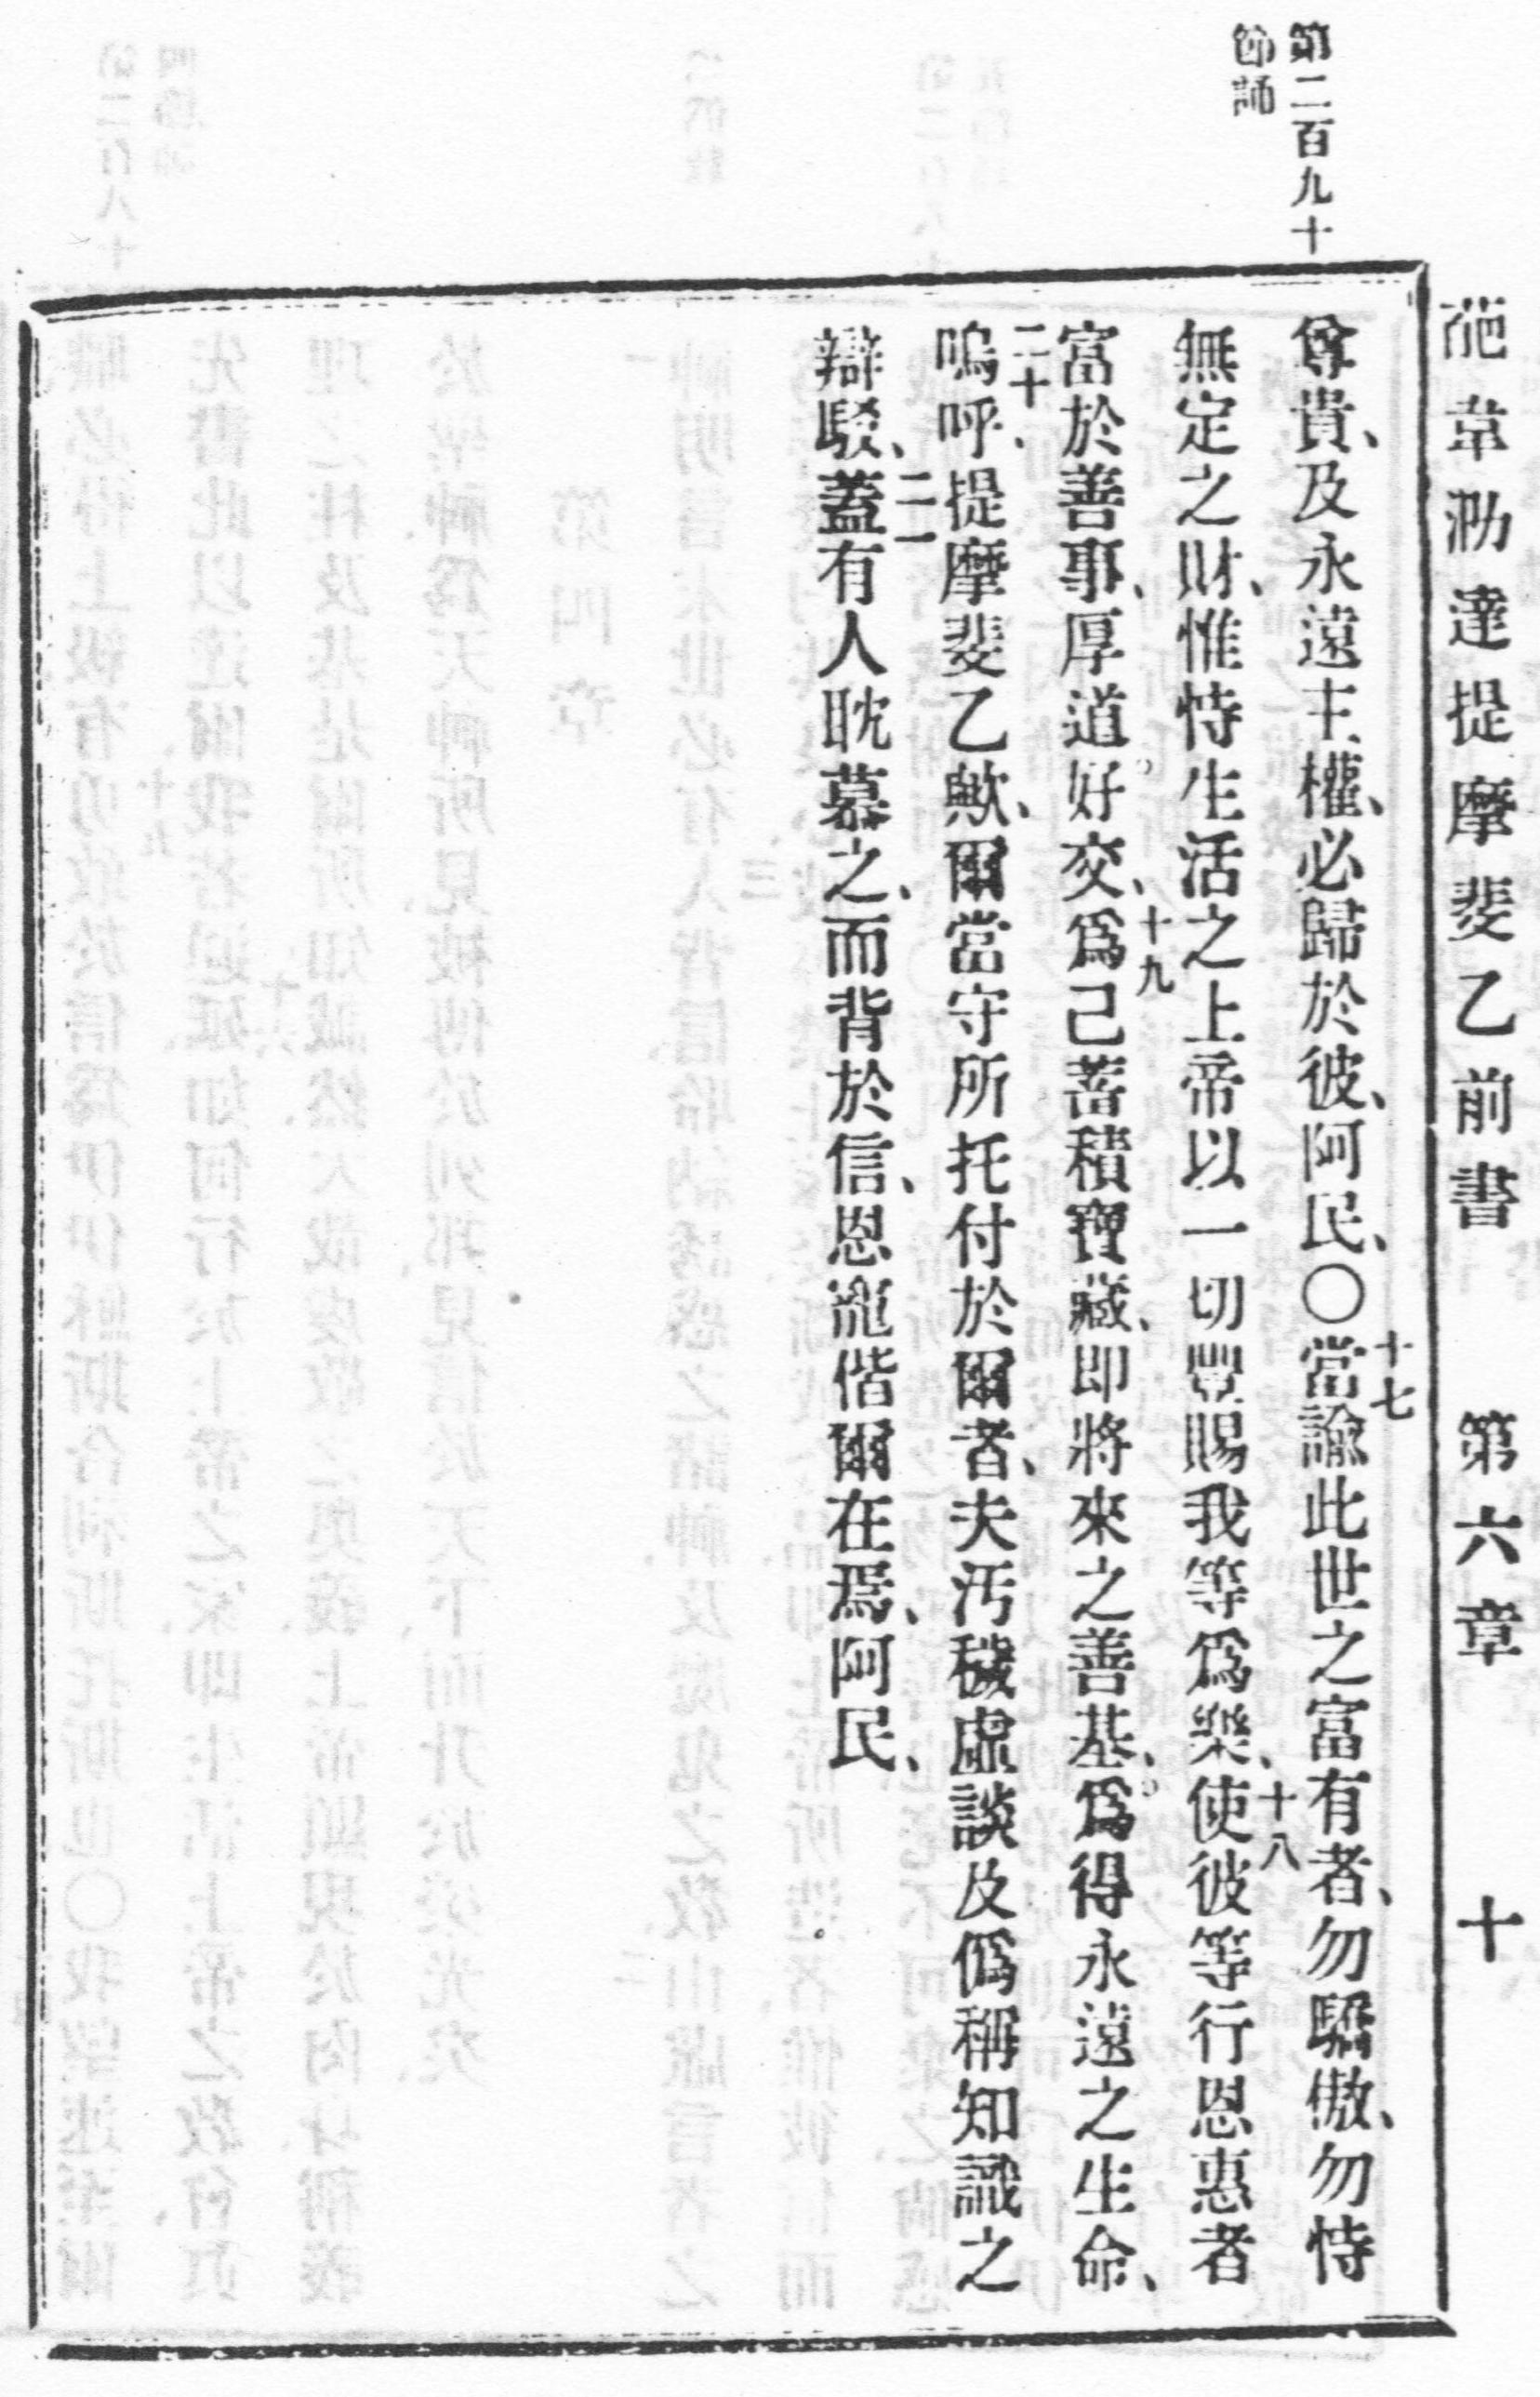 葩韋泐達提摩斐乙前書 第六章 十
第二百九十
節誦
尊貴、及永遠主權、必歸於彼、阿民、〇十七當諭此世之富有者、勿驕傲、勿恃
無定之財、惟恃生活之上帝以一切豐賜我等爲樂、十八使彼等行恩惠者
富於善事、厚道好交、十九爲己蓄積寶藏、即將來之善基、爲得永遠之生命、
二十嗚呼、提摩斐乙歟、爾當守所托付於爾者、夫汚穢虛談及僞稱知識之
辯駁、二一蓋有人耽慕之、而背於信、恩寵偕爾在焉、阿民、